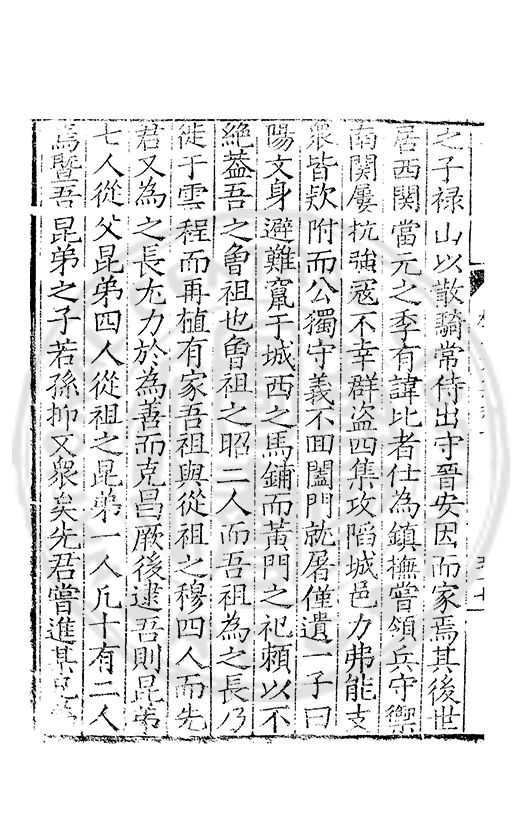 之子祿山以散騎常侍出守晉安因而家焉其後世
居西關當元之季有諱比者仕為鎮撫嘗領兵守禦
南關屢抗強寇不幸群盜四集攻陷城邑力弗能支
衆皆欵附而公獨守義不囬闔門就屠僅遺一子曰
陽文身避難竄于城西之馬鋪而黃門之祀賴以不
絶葢吾之魯祖也魯祖之昭二人而吾祖為之長乃
徙于雲程而再植有家吾祖與從祖之穆四人而先
君又為之長尤力於為善而克昌厥後逮吾則昆弟
七人從父昆弟四人從祖之昆弟一人凡十有二人
焉暨吾昆弟之子若孫抑又衆矣先君嘗進其兄